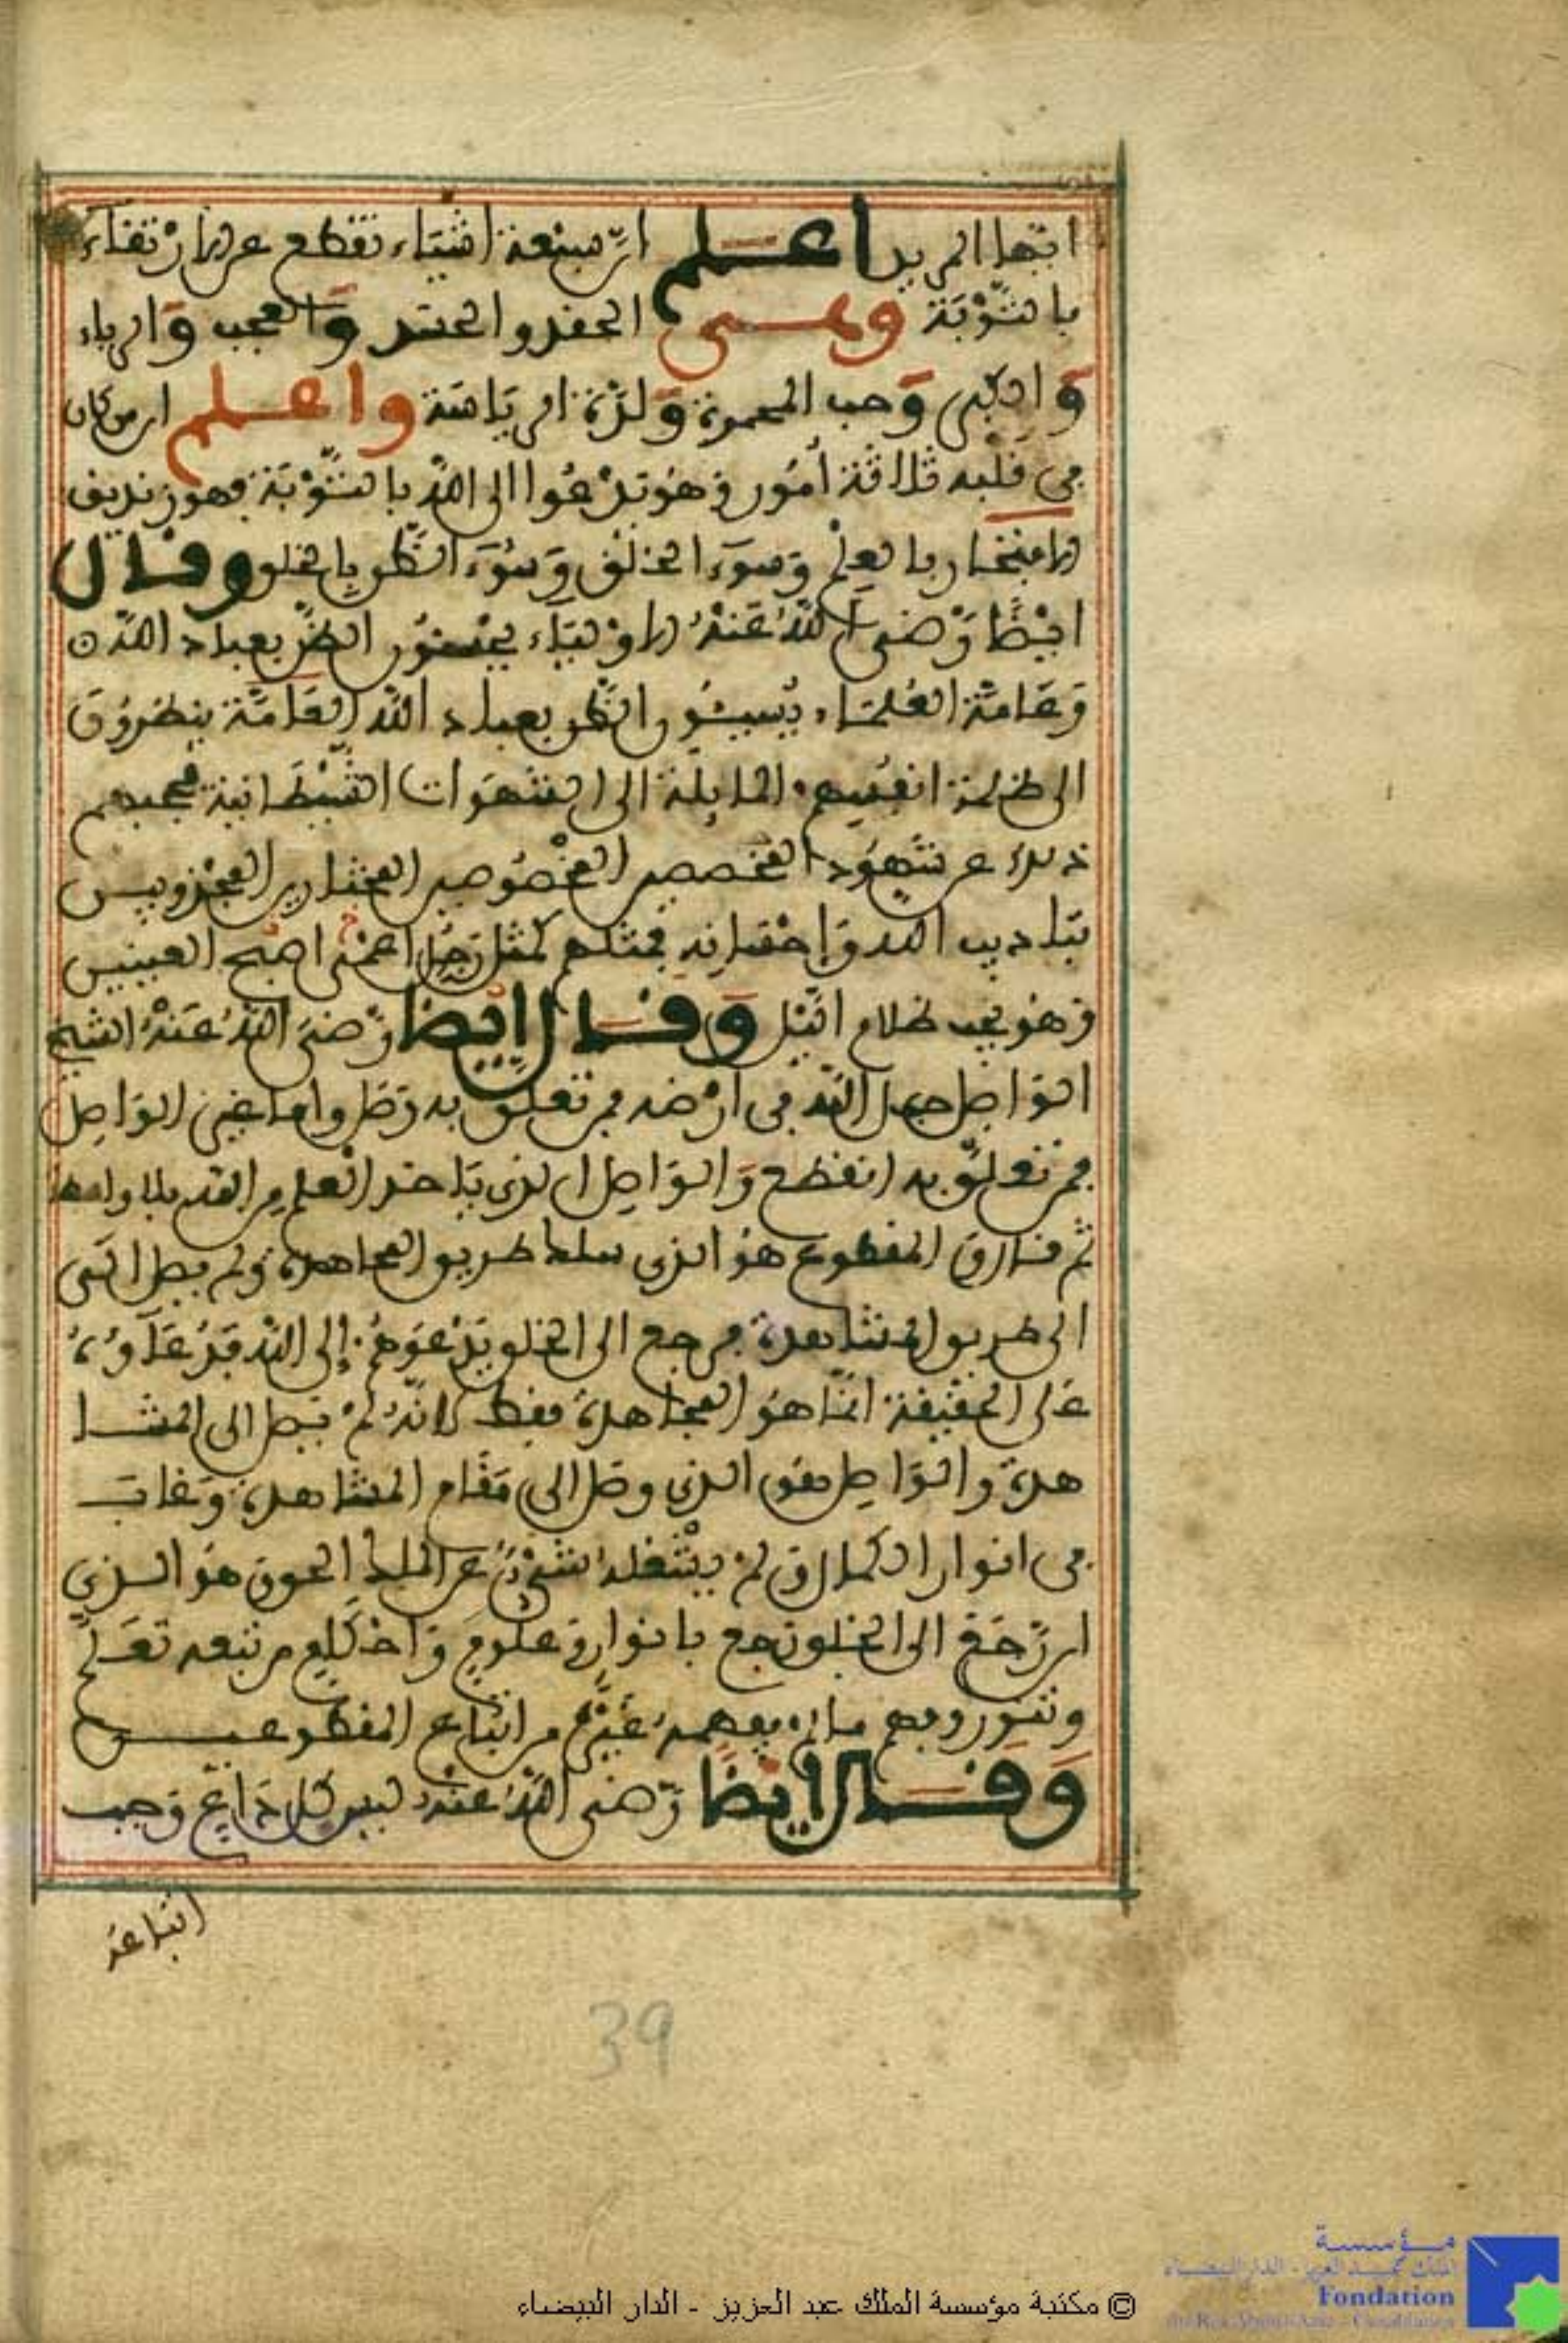 ايها المريد اعلم ان سبعة اشياء تقطع عن الارتقاء
بالتوبة وهى الحقد والحسد والعجب والرياء
والكبر وحب المحمدة ولذة الرياسة واعلم ان من كان
في قلبه ثلاثة أمور وهو تدعوا الى الله بالتوبة فهو زنديق
الافتخار بالعلم وسوء الخلق وسوء الظن بالخلق وقال
ايضا رضى الله عنه الاولياء يحسنون الظن بعباد الله
وعامة العلماء يسيئون الظن بعباد الله العامة ينظرون
الى ظلمة انفسهم المايلة الى الشهوات الشيطانية فحجبهم
ذلك عن شهود
بتاديب الله واحسانه فمثلهم كمثل رجل اعمى اصبح العينين
وهو يحب ظلام الليل وقال ايضا رضى الله عنه الشيخ
الواصل حبل الله في ارضه فمن تعلق به وصل واما غير الواصل
فمن تعلق به انقطع والواصل الذى ياخذ العلم من الله بلا واسطة
ثم قال المقطوع هو الذى سلك طريق المجاهدة ولم يصل
الى طريق المشاهدة فرجع الى الخلق يدعوهم إلى الله فدعاؤه
على الحقيقة انما هو المجاهدة فقط لانه لم يصل الى المشا
هدة والواصل هو الذى وصل الى مقام المشاهدة وغاب
في انوار الكمال لم يشغله شىء عن الملك الحق هو الذى
ان رجع الى الخلق رجع بانوار وعلوم من تبعه تعلم
وتنور وفهم ما لم يفهمه غيره من اتباع المقطوعين
وقال ايضا رضى الله عنه ليس كل داع وجب
اتباعه
39
© مكتبة مؤسسة الملك عبد العزيز - الدار البيضاء
مؤسسة
الملك عبد العزيز - الدار البيضاء
Fondation
du Roi Abdul-Aziz - Casablanca